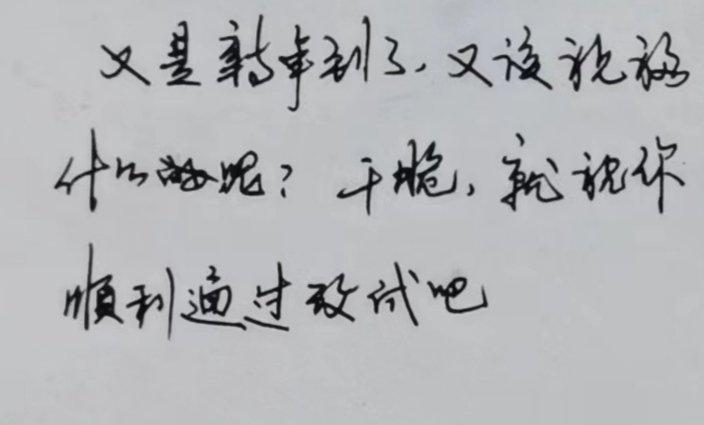 又是新年到了,又该祝福
什么呢?干脆,就祝你
顺利通过考试吧